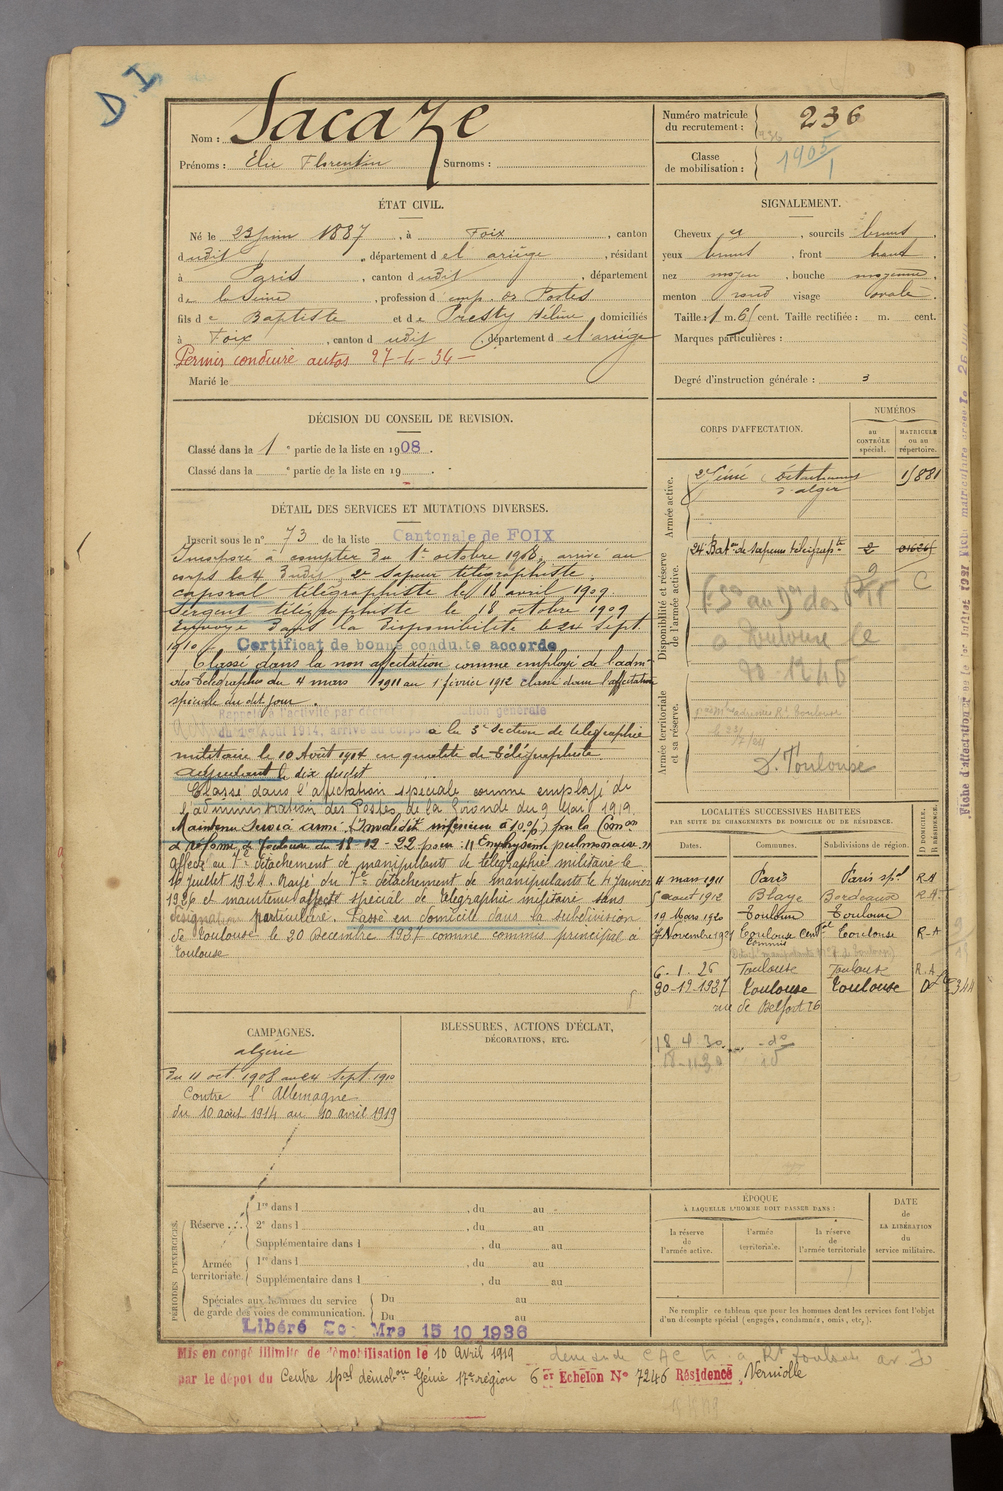 D.I
Nom : Sacaze
Prénoms : Elie Florentin Surnoms :
Numéro matricule
du recrutement : 236
Classe
de mobilisation : 1905/1
ÉTAT CIVIL.
Né le 23 juin 1887, à Foix, canton
dudit, département de l'ariège, résidant
à Paris, canton dudit, département
de la Seine, profession d'emp. des Postes
fils de Baptiste et de Presty Hélène domiciliés
à Foix, canton dudit, département de l'ariège
Permis conduire autos 27-4-34
Marié le
SIGNALEMENT.
Cheveux et, sourcils bruns
yeux bruns, front haut
nez moyen, bouche moyenne,
menton rond visage ovale.
Taille : 1 m. 61 cent. Taille rectifiée : m. cent.
Marques particulières :
Degré d'instruction générale : 3
DÉCISION DU CONSEIL DE REVISION.
Classé dans la 1e partie de la liste en 1908.
Classé dans la e partie de la liste en 19 .
DÉTAIL DES SERVICES ET MUTATIONS DIVERSES.
Inscrit sous le n° 73 de la liste Cantonale de FOIX
Incorporé à compter du 1er octobre 1908, arrivé au
corps le 4 dudit, 2e Sapeur télégraphiste.
Caporal télégraphiste le 18 avril 1909.
Sergent télégraphiste le 18 octobre 1909
Envoyé dans la disponibilité le 24 Sept.
1910. Certificat de bonne conduite accordé
Classé dans la non affectation comme employé de l'admon
des télégraphes du 4 mars 1911 au 1 février 1912 classé dans l'affectation
spéciale du dit jour.
Rappelé à l'activité par mobilisation générale
du 1er Août 1914, arrivé au corps à la 5e Section de télégraphie
militaire le 10 Août 1914 en qualité de télégraphiste.
Adjudant le dix dudit
Classé dans l'affectation spéciale comme employé de
l'administration des Postes de la Gironde du 9 Mai 1919
Maintenu Service armé (Invalidité inférieure à 10%) par la Comon
de réforme de Toulouse du 18-12-22 pour : "Emphysème pulmonaire"
Affecté au 7e détachement de manipulants de télégraphie militaire le
16 juillet 1924. Rayé du 7e détachement de manipulants le 4 janvier
1926 et maintenu affecté spécial de télégraphie militaire sans
désignation particulière. Passé en domicile dans la subdivision
de Toulouse le 20 Décembre 1927 comme commis principal à
Toulouse
CORPS D'AFFECTATION.
NUMÉROS
au
CONTRÔLE
spécial.
MATRICULE
ou au
répertoire.
Armée active.
2e Génie (Détachement
d'alger
1/881
Disponibilité et réserve
de l'armée active.
24 Baton de Sapeurs télégrapte
à Toulouse le
C
Armée territoriale
et sa réserve.
D. Toulouse
LOCALITÉS SUCCESSIVES HABITÉES
PAR SUITE DE CHANGEMENTS DE DOMICILE OU DE RÉSIDENCE.
D DOMICILE.
R RÉSIDENCE.
Dates. Communes. Subdivisions de région.
4 mars 1911 Paris Paris spal RA
5 aout 1912 Blaye Bordeaux R.A.
19 Mars 1920 Toulouse Toulouse
Novembre 1921 Toulouse Central Toulouse R-A
Commis
6. 1. 26 Toulouse Toulouse R.A
20-12-1927 Toulouse Toulouse D
rue de Belfort 26
18 4 30 do
CAMPAGNES.
algérie
Du 4 oct. 1908 au 24 Sept. 1910
Contre l'Allemagne
du 10 août 1914 au 10 avril 1919
BLESSURES, ACTIONS D'ÉCLAT,
DÉCORATIONS, ETC.
PÉRIODES D'EXERCICES.
Réserve
1re dans l , du au .
2e dans l , du au
Supplémentaire dans l , du au
Armée
territoriale.
1re dans l , du au
Supplémentaire dans l , du au
Spéciales aux hommes du service
de garde des voies de communication.
Du au
Du au
ÉPOQUE
À LAQUELLE L'HOMME DOIT PASSER DANS :
la réserve
de
l'armée active.
l'armée
territoriale.
la réserve
de
l'armée territoriale
DATE
de
LA LIBÉRATION
du
service militaire.
Ne remplir ce tableau que pour les hommes dont les services font l'objet
d'un décompte spécial (engagés, condamnés, omis, etc.).
Libéré Mre 15 10 1936
Mis en congé illimité de démobilisation le 10 Avril 1919
par le dépôt du Centre spal démobon Génie 17e région 6 er Echelon N° 7246 Résidence, Verniolle